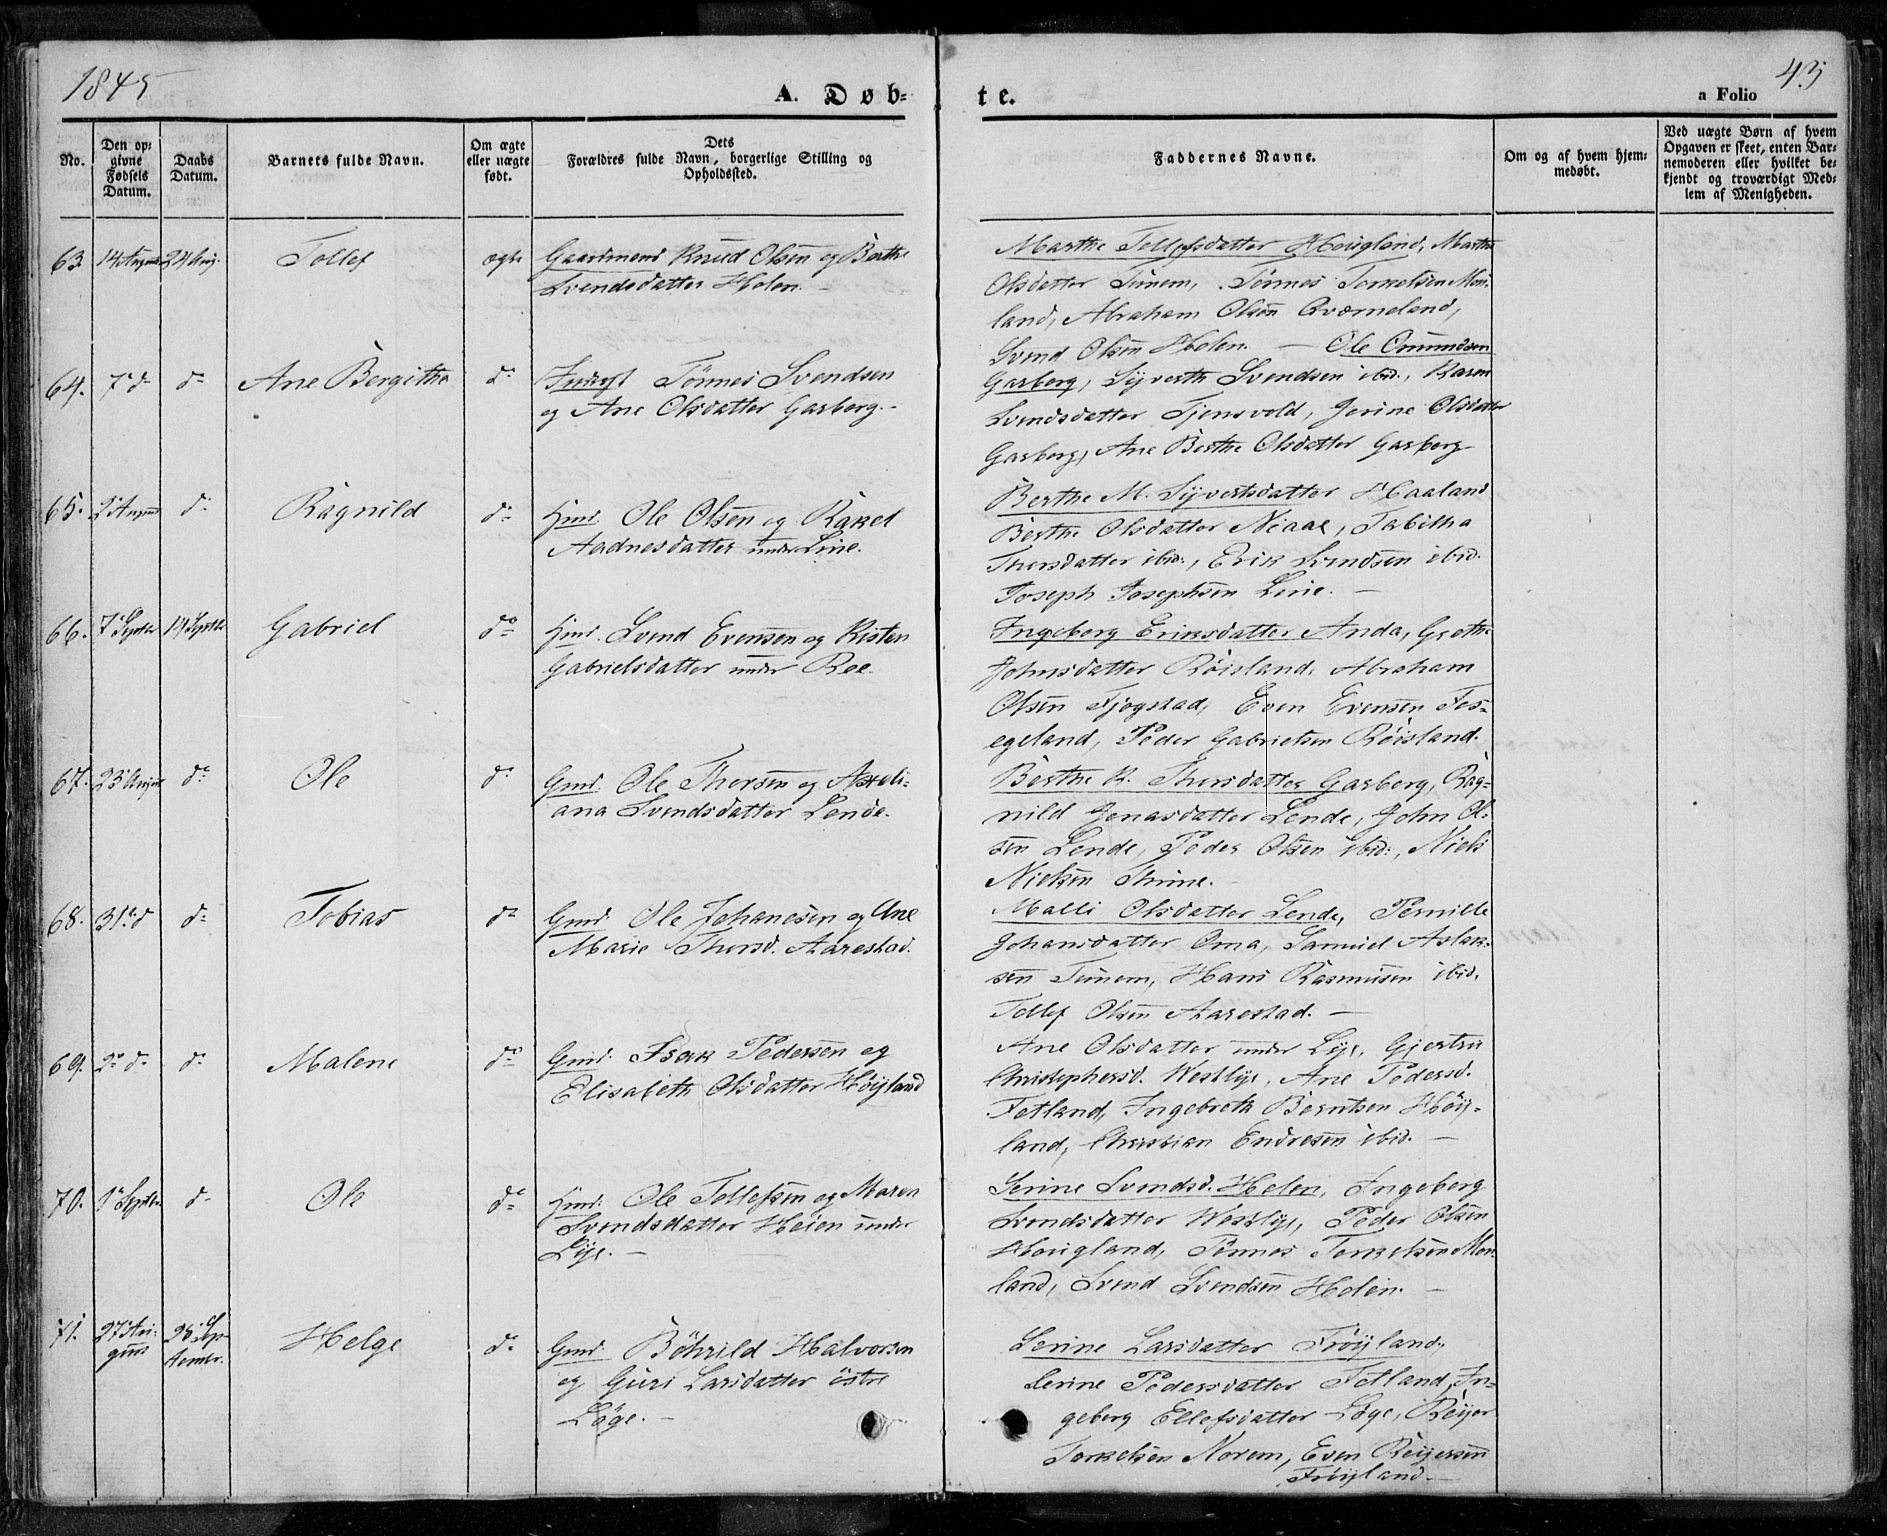 1845
43
A. Døb-
te.
a Folio
No.
Den op-
givne
Fødsels
Datum.
Daabs
Datum.
Barnets fulde Navn.
Om ægte
eller uægte
født.
Dets
Forældres fulde Navn, borgerlige Stilling og
Opholdssted.
Faddernes Navne.
Om og af hvem hjem-
medøbt.
Ved uægte Børn af hvem
Opgaven er skeet, enten Bar-
nemoderen eller hvilket be-
kjendt og troværdigt Med-
lem af Menigheden.
63 14 August 24 Aug. Tollef ægte Gaardmand Knud Olsen og Berthe
Svendsdatter Helen.
Marthe Tollefsdatter Hougland, Marthe
Olsdatter Tunem, Tönnes Torkelsen Mou-
land, Abraham Olsen Qværneland,
Svend Olsen Helen. —
64. 7de d— d— Ane Bergithe d— Tönnes Svendsen
og Ane Olsdatter Garborg.
Ole Omundsen
Garborg, Syverth Svendsen ibid., Karen
Svendsdatter Tjensvold, Jorine Olsdatter
Garborg, Ane Berthe Olsdatter Garborg
65. 2 August d— Ragnild d— Hmd. Ole Olsen og Rakel
Aadnesdatter under Line.
Berthe M. Syvertsdatter Haaland
Berthe Olsdatter Niaae, Tabitha
Thorsdatter ibid., Erik Svendsen ibid.
Joseph Josephsen Line. —
66. 7 Septbr 14 Septbr Gabriel do Hmd. Svend Evensen og Kisten
Gabrielsdatter under Ree.
Ingeborg Eriksdatter Anda, Grethe
Johnsdatter Röisland, Abraham
Olsen Fjogstad, Even Evensen Fos-
egeland, Peder Gabrielsen Röisland.
67. 23 August do Ole do Gmd. Ole Thorsen og Axeli-
ana Svendsdatter Lende.
Berthe K. Thorsdatter Garborg, Rag-
nild Jonasdatter Lende, John Ol-
sen Lende, Peder Olsen ibid., Niels
Nielsen Thime.
68. 31te d d— Tobias do Gmd. Ole Johanesen og Ane
Marie Thorsd. Aarestad.
Malli Olsdatter Lende, Pernille
Johansdatter Oma, Samuel Aslak-
sen Tunem, Hans Rasmusen ibid.
Tollef Olsen Aarestad. —
69. 2de d— do Malene do Gmd. Isak Pedersen og
Elisabeth Olsdatter Höyland
Ane Olsdatter under Lye, Gjertru
Christophersd. Westlye, Ane Pedersd.
Fetland, Ingebreth Berntsen Höy-
land, Christian Endresen ibid. —
70. 1 Septbr d— Ole do Hmd. Ole Tollefsen og Maren
Svendsdatter Heien under
Lye. —
Serine Svendsd. Helen, Ingeborg
Svendsdatter Westlye, Peder Olsen
Hougland, Tönnes Torkelsen Mou-
land, Svend Svendsen Helen. —
71. 27 Au-
gust 28 Sep-
tember. Helge do Gmd. Böhrild Halvorsen
og Guri Larsdatter östre
Löge. —
Serine Larsdatter Fröyland,
Serine Pedersdatter Fetland, In-
geborg Ellefsdatter Löge, Reyer
Torkelsen Norem, Even Reyersen
Fröyland. —